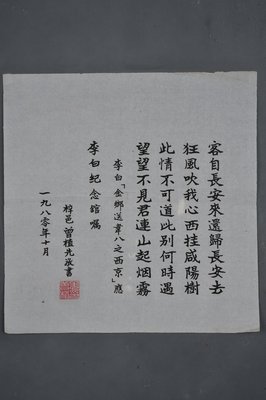 客自長安來還歸長安去
狂風吹我心西挂咸陽樹
此情不可道此别何時遇
望望不見君連山起烟霧
李白「金鄉送韋八之西京」應
李白紀念館囑
梓邑曾植光敬書
一九八〇年十月